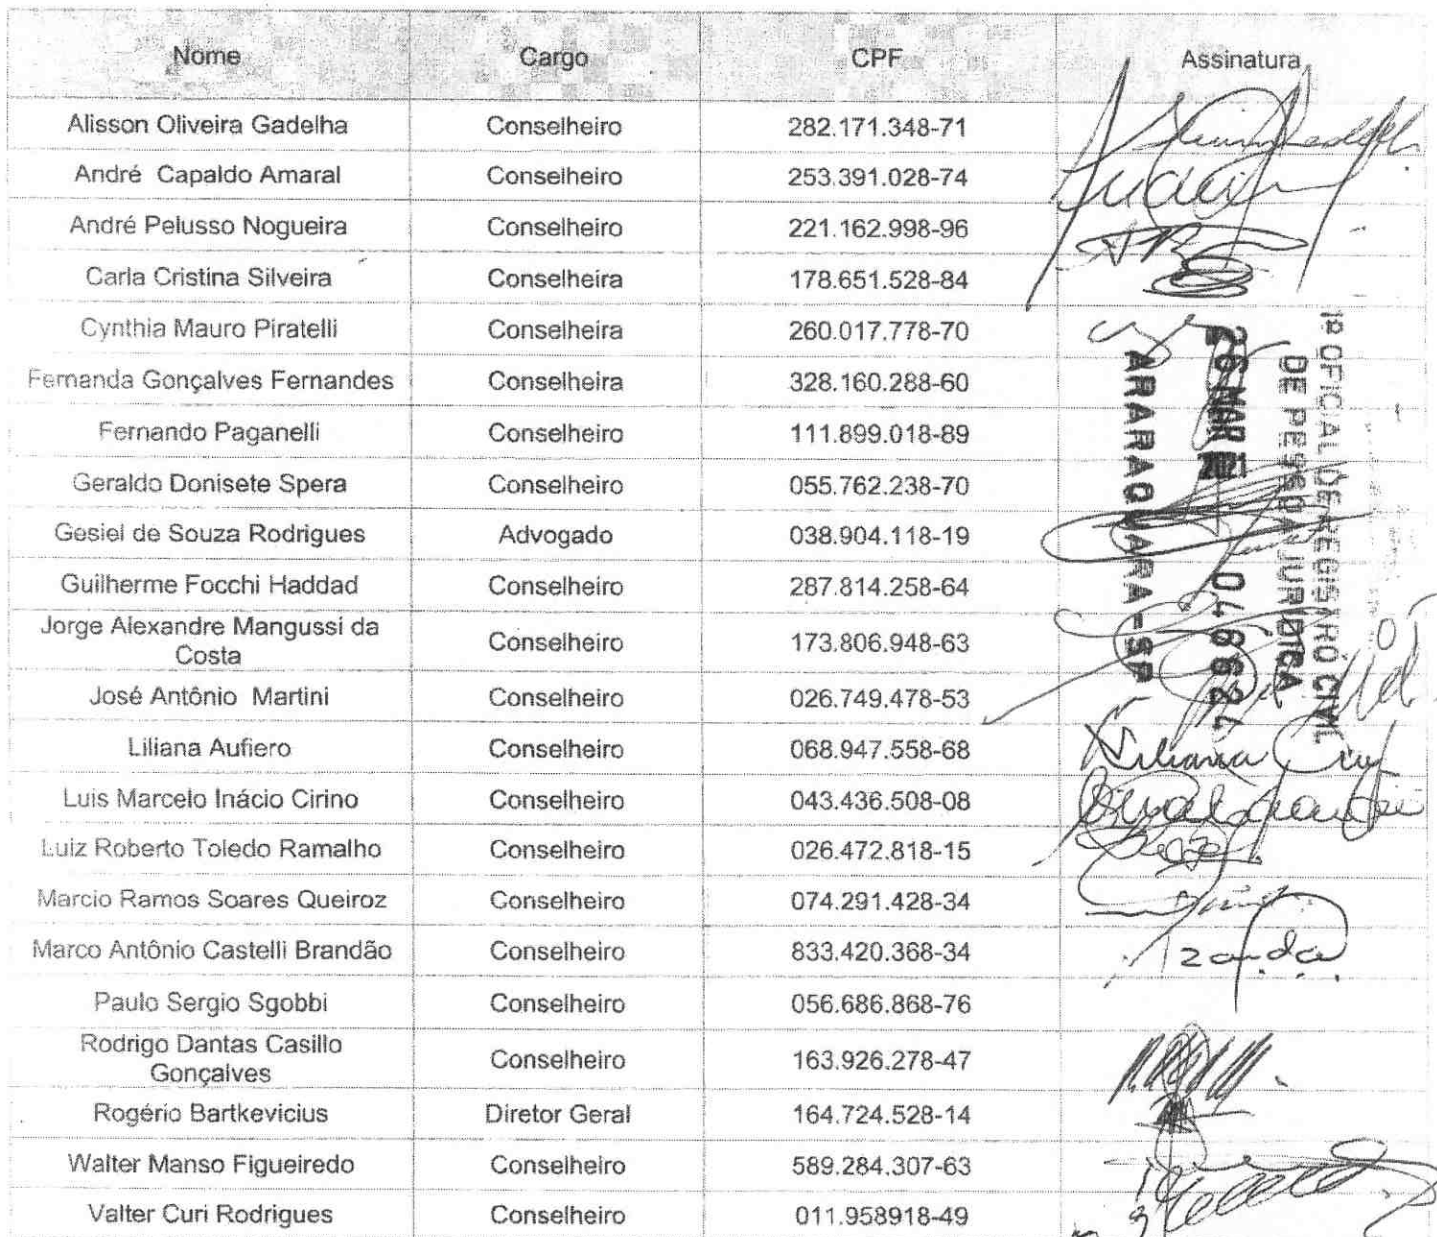 Nome Cargo CPF Assinatura
Alisson Oliveira Gadelha Conselheiro 282.171.348-71
André Capaldo Amaral Conselheiro 253.391.028-74
André Pelusso Nogueira Conselheiro 221.162.998-96
Carla Cristina Silveira Conselheiro 178.651.528-84
Cynthia Mauro Piratelli Conselheira 260.017.778-70
Fernanda Gonçalves Fernandes Conselheira 328.160.288-60
Fernando Paganelli Conselheiro 111.899.018-89
Geraldo Donisete Spera Conselheiro 055.762.238-70
Gesiel de Souza Rodrigues Advogado 038.904.118-19
Guilherme Focchi Haddad Conselheiro 287.814.258-64
Jorge Alexandre Mangussi da
Costa Conselheiro 173.806.948-63
José Antônio Martini Conselheiro 026.749.478-53
Liliana Aufiero Conselheiro 068.947.558-68
Luis Marcelo Inácio Cirino Conselheiro 043.436.508-08
Luiz Roberto Toledo Ramalho Conselheiro 026.472.818-15
Marcio Ramos Soares Queiroz Conselheiro 074.291.428-34
Marco Antônio Castelli Brandão Conselheiro 833.420.368-34
Paulo Sergio Sgobbi Conselheiro 056.686.868-76
Rodrigo Dantas Casillo
Gonçalves Conselheiro 163.926.278-47
Rogério Bartkevicius Diretor Geral 164.724.528-14
Walter Manso Figueiredo Conselheiro 589.284.307-63
Valter Curi Rodrigues Conselheiro 011.958918-49
1º OFICIAL DE REGISTRO CIVIL
DE PESSOA JURÍDICA
26 MAR 2021 046624
ARARAQUARA - SP